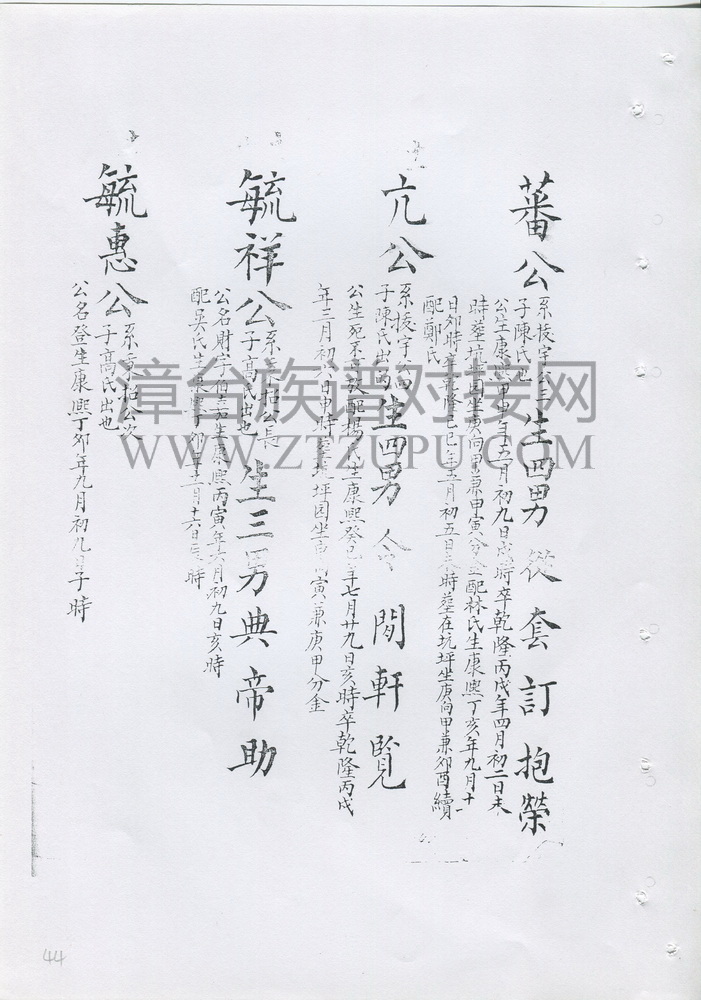 蕃公
系拔宇公三
子陳氏也
生四男 從 套 訂 抱 榮
公生康熙年五月初九日戌時卒乾隆丙戌年四月初二日未
時葬坑園坐庚向甲兼申寅分金配林氏生康熙丁亥年九月十一
日卯時卒乾隆己巳年五月初五日未時葬在坑坪坐庚向甲兼卯酉續
配鄭氏
亢公
系拔宇公
子陳氏出
生四男 閱 軒 覽
公生死不配楊氏生康熙癸巳年七月廿九日亥時卒乾隆丙戌
年三月初八日申時葬坑坪园坐寅兼庚甲分金
毓祥公
系公長
子高氏出也
生三男 典 帝 助
公名財字生康熙丙寅年六月初九日亥時
配吳氏生康熙丁卯年十二月十六日辰時
毓惠公
系公次
子高氏出也
公名登生康熙丁卯年九月初九日子時
漳台族谱对接网
WWW.ZTZUPU.COM
44